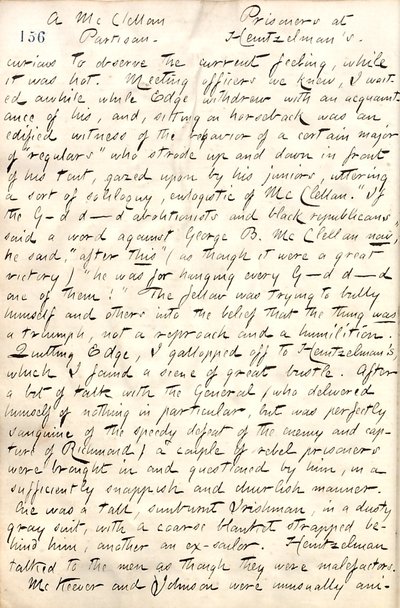 A McClellan Prisoners at
156 Partisan. Heintzelman's.
curious to observe the current feeling, while
it was hot. Meeting officers we knew, I wait-
ed awhile while Edge withdrew with an acquaint
ance of his, and, sitting on horseback was an
edified witness of the behavior of a certain major
of "regulars" who strode up and down in front
of his tent, gazed upon by his juniors, uttering
a sort of soliloquy, eulogistic of McClellan. "If
the G-d d—d abolitionists and black republicans"
said a word against George B. McClellan now,
he said, "after this" (as though it were a great
victory) "he was for hanging every G-d d—d
one of them!" The fellow was trying to bully
himself and others into the belief that the thing was
a triumph, not a reproach and a humilition.
Quitting Edge, I gallopped off to Heintzelman's,
which I found a scene of great bustle. After
a bit of talk with the General (who delivered
himself of nothing in particular, but was perfectly
sanguine of the speedy defeat of the enemy and cap-
ture of Richmond) a couple of rebel prisoners
were brought in and questioned by him, in a
sufficiently snappish and churlish manner.
One was a tall, sunburnt Irishman, in a dusty
gray suit, with a coarse blanket strapped be-
hind him, another an ex-sailor. Heintzelman
talked to the men as though they were malefactors.
McKeever and Johnson were unusually ani-